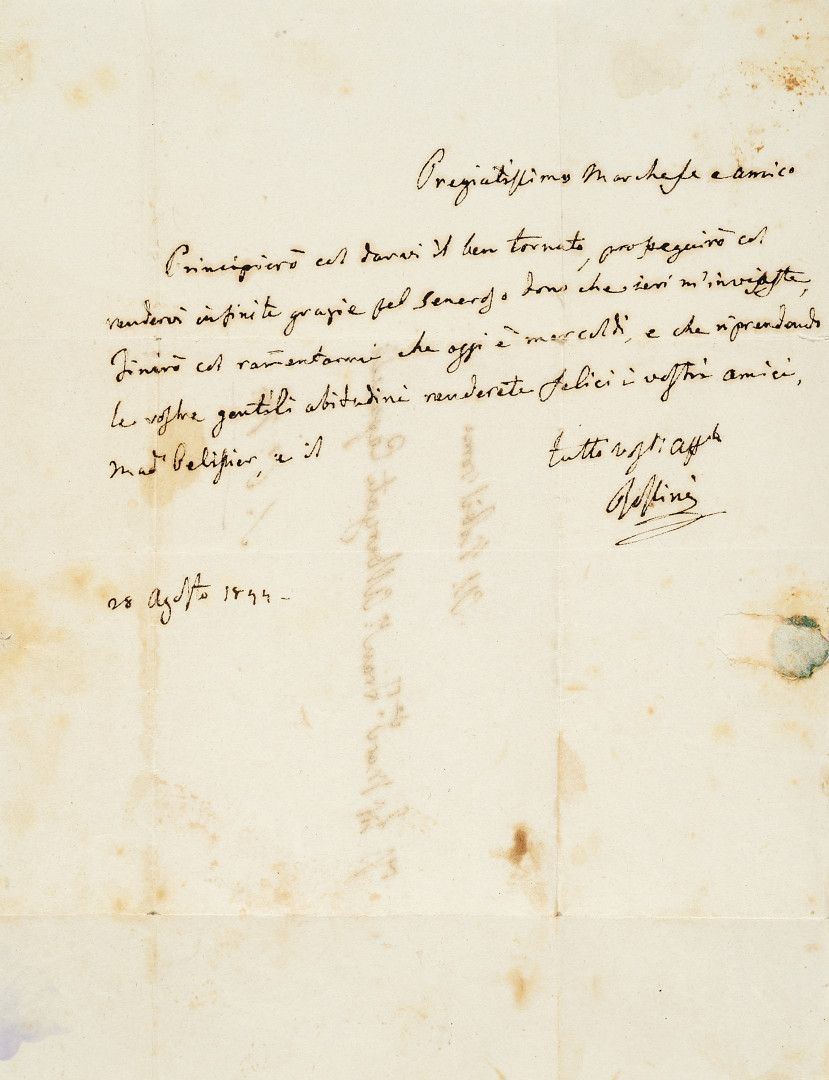 Pregiatissimo Marchese e amico
Principierò col darvi il ben tornato, proseguirò col
rendervi infinite grazie pel generoso dono che ieri m'inviaste,
finirò col rammentarmi che oggi è mercoldì, e che riprendendo
le vostre gentili abitudini renderete felici i vostri amici,
Mad Pelissier, e il
tutto vostro Aff
Rossini
28 Agosto 1844 -